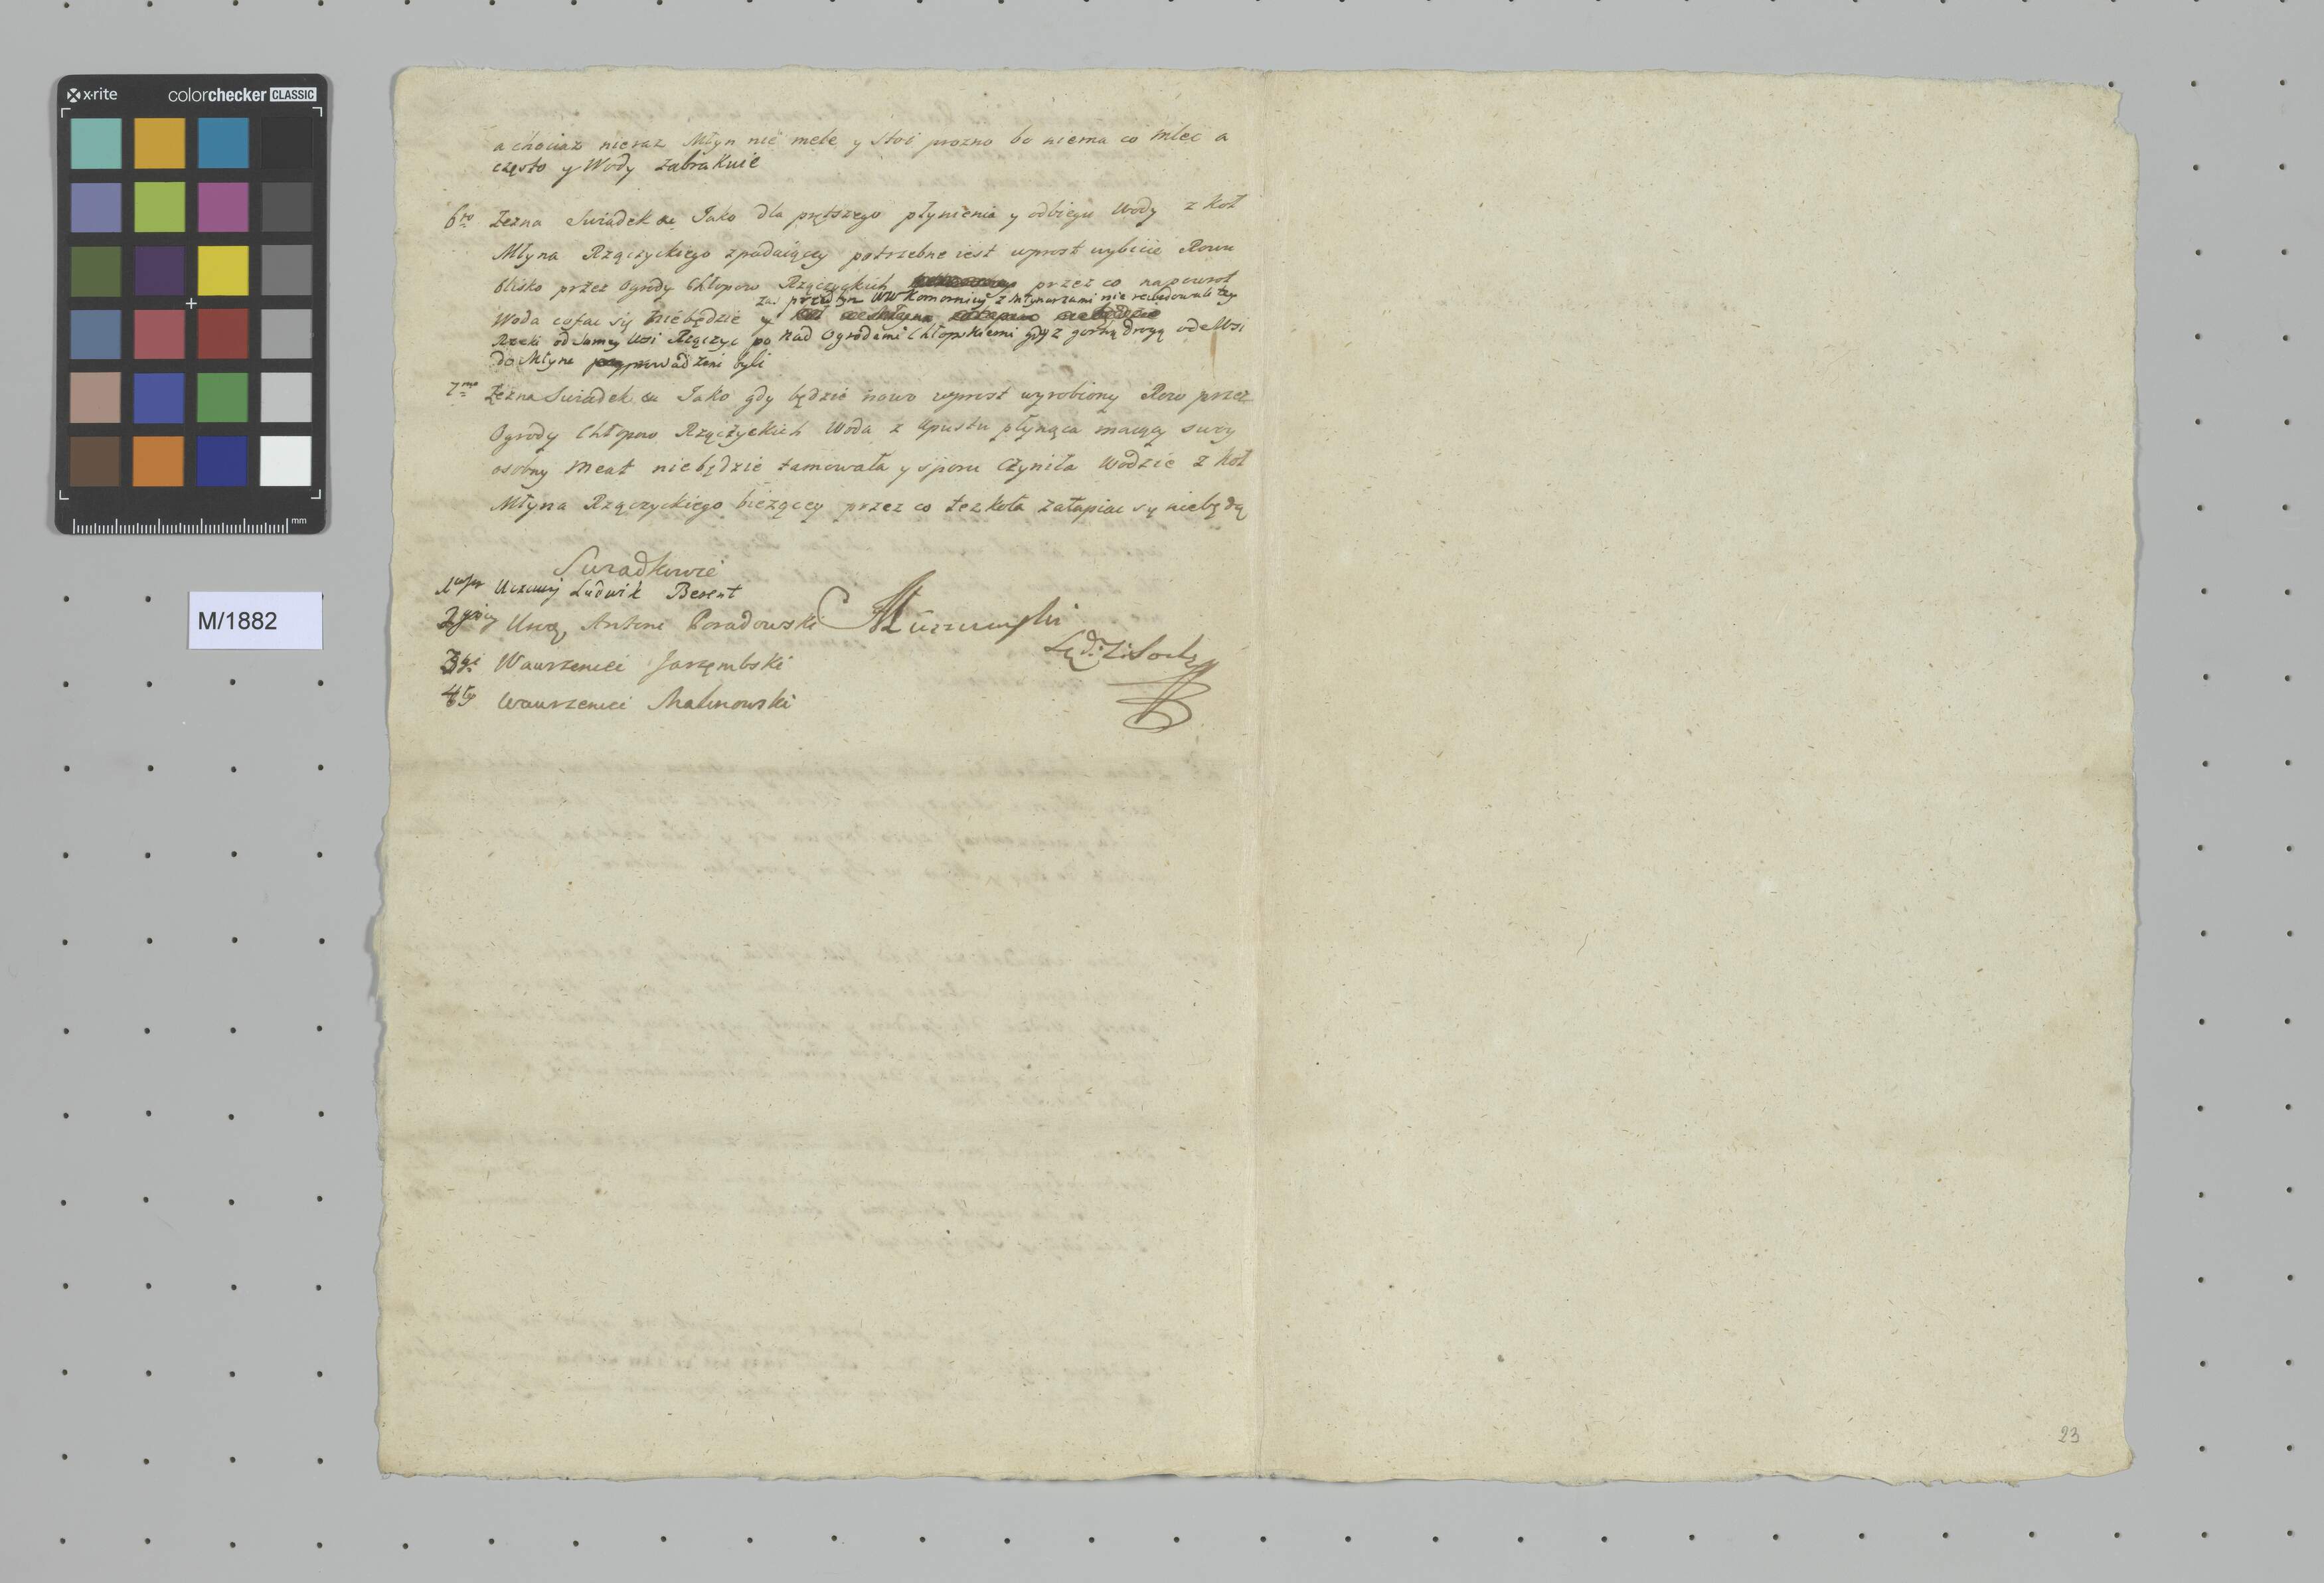 x-rite colorchecker CLASSIC
mm
M/1882
a chociaż nieraz Młyn nie mele y stoi prozno bo niema co mlec a
często y Wody zabrakuie
6to Zezna Swiadek Jako dla prętszego płynienia y odbiegu Wody z Koł
Młyna Rzączyckiego zpadaiącey potrzebne iest wprost wybicie Rowu
blisko przez Ogrody Chłopow Rzączyckich przez co napowrot
Woda cofac się niebędzie y
za przed tym WW Komornicy z Młynarzami nie rewidowali tey
Rzeki od samey Wsi Rzączyc po nad Ogrodami Chłopskiemi gdy z gorną drogą od Wsi
do Młyna byli
7mo Zezna Swiadek Jako gdy będzie nowo wprost wyrobiony Row przez
Ogrody Chłopow Rzączyckich Woda z Upustu płynąca maiący swoy
osobny meat niebędzie tamowała y sporu czyniła Wodzie z Koł
Młyna Rzączyckiego bieżącey przez co tez koła zatapiac się niebędą
Swiadkowie
1wszy Uczciwy Ludwik Berent
2gi Ucz. Antoni Poradowski
3ci Wawrzeniec Jarzębski
4ty Wawrzeniec Malinowski
23